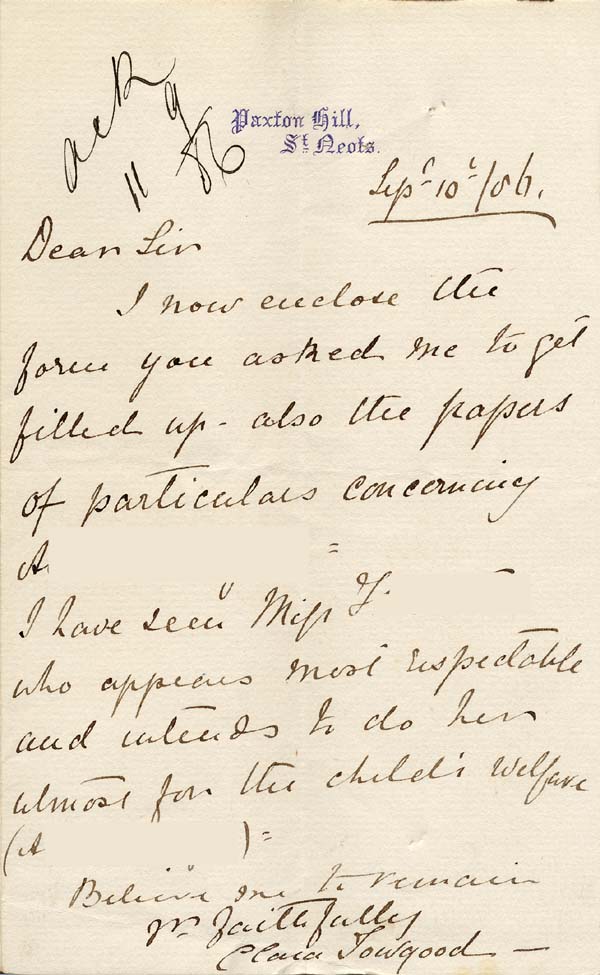 ack
11 9 86
Paxton Hill,
St. Neots.
Sept 10t/86.
Dear Sir
I now enclose the
form you asked me to get
filled up - also the papers
of particulars concerning
A. =
I have seen "Miss F.
who appears most respectable
and intends to do her
utmost for the child's welfare
(A ) =
Believe me to remain
yrs faithfully
Clara Towgood —